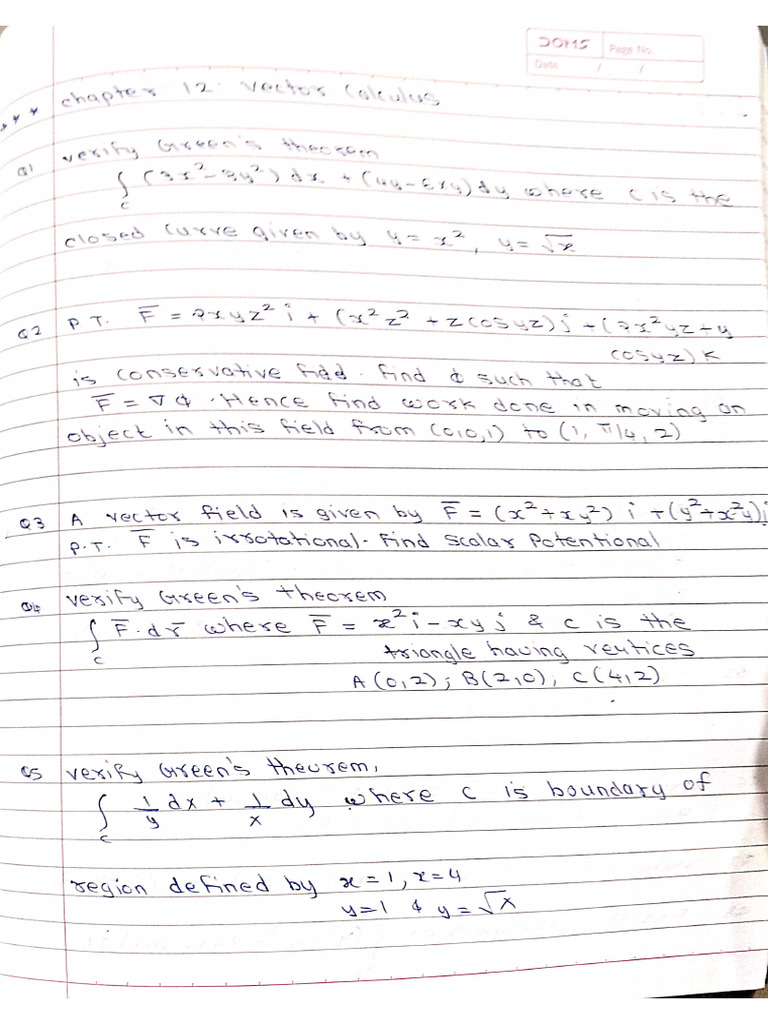 JOMS Page No.
Date / /
*** chapter 12. Vector Calculus
Q1 verify Green's theorem
∫c (3x² - 8y²) dx + (4y - 6xy) dy where C is the
closed curve given by y = x², y = √x
Q2 P.T. F̅ = 2xyz² i + (x²z² + z cosyz) j + (2x²yz + y
cosyz) k
is conservative field. find ϕ such that
F̅ = ∇ϕ. Hence find work done in moving an
object in this field from (0,0,1) to (1, π/4, 2)
Q3 A vector field is given by F̅ = (x² + xy²) i + (y² + x²y) j
P.T. F̅ is irrotational. Find scalar Potentional
Q4 verify Green's theorem
∫c F̅. dr̅ where F̅ = x² i - xy j & c is the
triangle having vertices
A (0,2), B(2,0), C(4,2)
Q5 verify Green's theorem,
∫c 1/y dx + 1/x dy where C is boundary of
region defined by x = 1, x = 4
y = 1 & y = √x